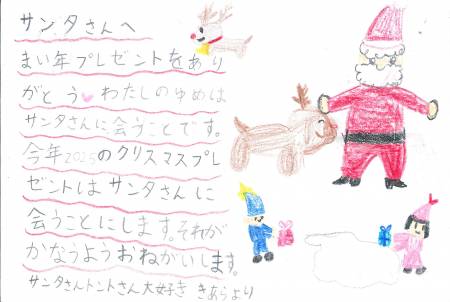 サンタさんへ
まい年プレゼントをあり
がとう わたしのゆめは
サンタさんに会うことです。
今年2025のクリスマスプレ
ゼントはサンタさんに
会うことにします。それが
かなうようおねがいします。
サンタさんトントさん大好き きあらより